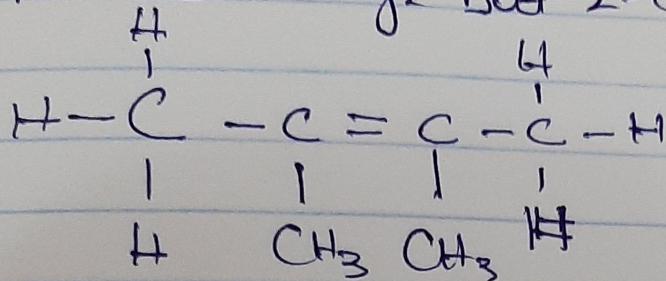 H
H
H - C - C = C - C - H
H CH3 CH3 H